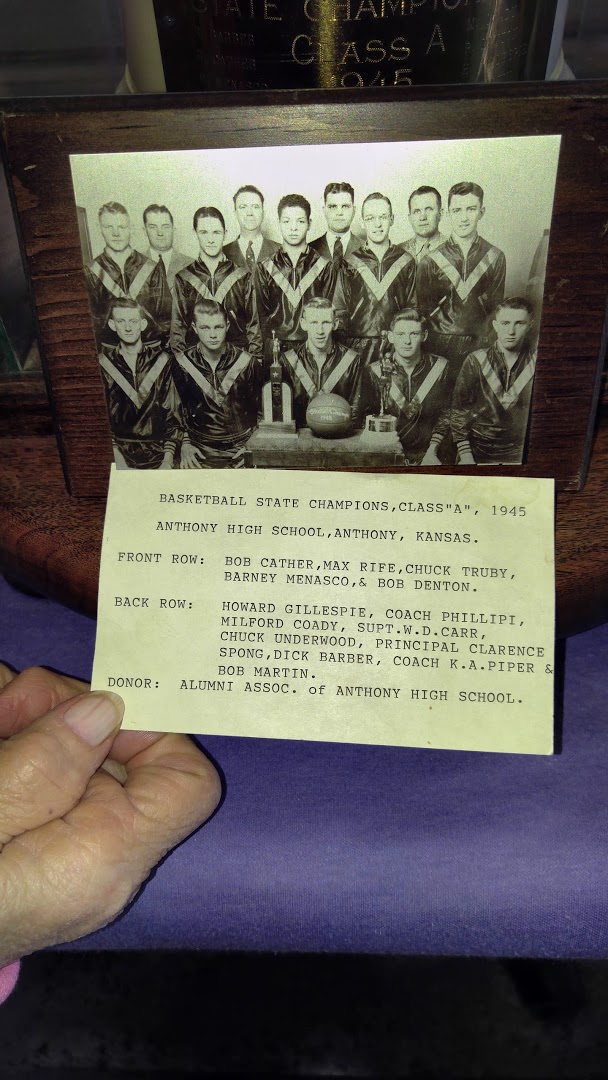 STATE CHAMPION
BARBER
CLASS A
1945
BASKETBALL STATE CHAMPIONS,CLASS"A", 1945
ANTHONY HIGH SCHOOL,ANTHONY, KANSAS.
FRONT ROW: BOB CATHER,MAX RIFE,CHUCK TRUBY,
BARNEY MENASCO,& BOB DENTON.
BACK ROW: HOWARD GILLESPIE, COACH PHILLIPI,
MILFORD COADY, SUPT.W.D.CARR,
CHUCK UNDERWOOD, PRINCIPAL CLARENCE
SPONG,DICK BARBER, COACH K.A.PIPER &
BOB MARTIN.
DONOR: ALUMNI ASSOC. of ANTHONY HIGH SCHOOL.